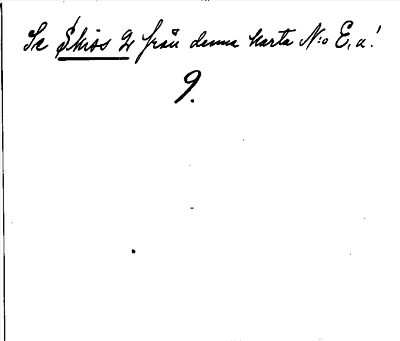 Se Skiss 2 från denna karta N:o E, a!
9.